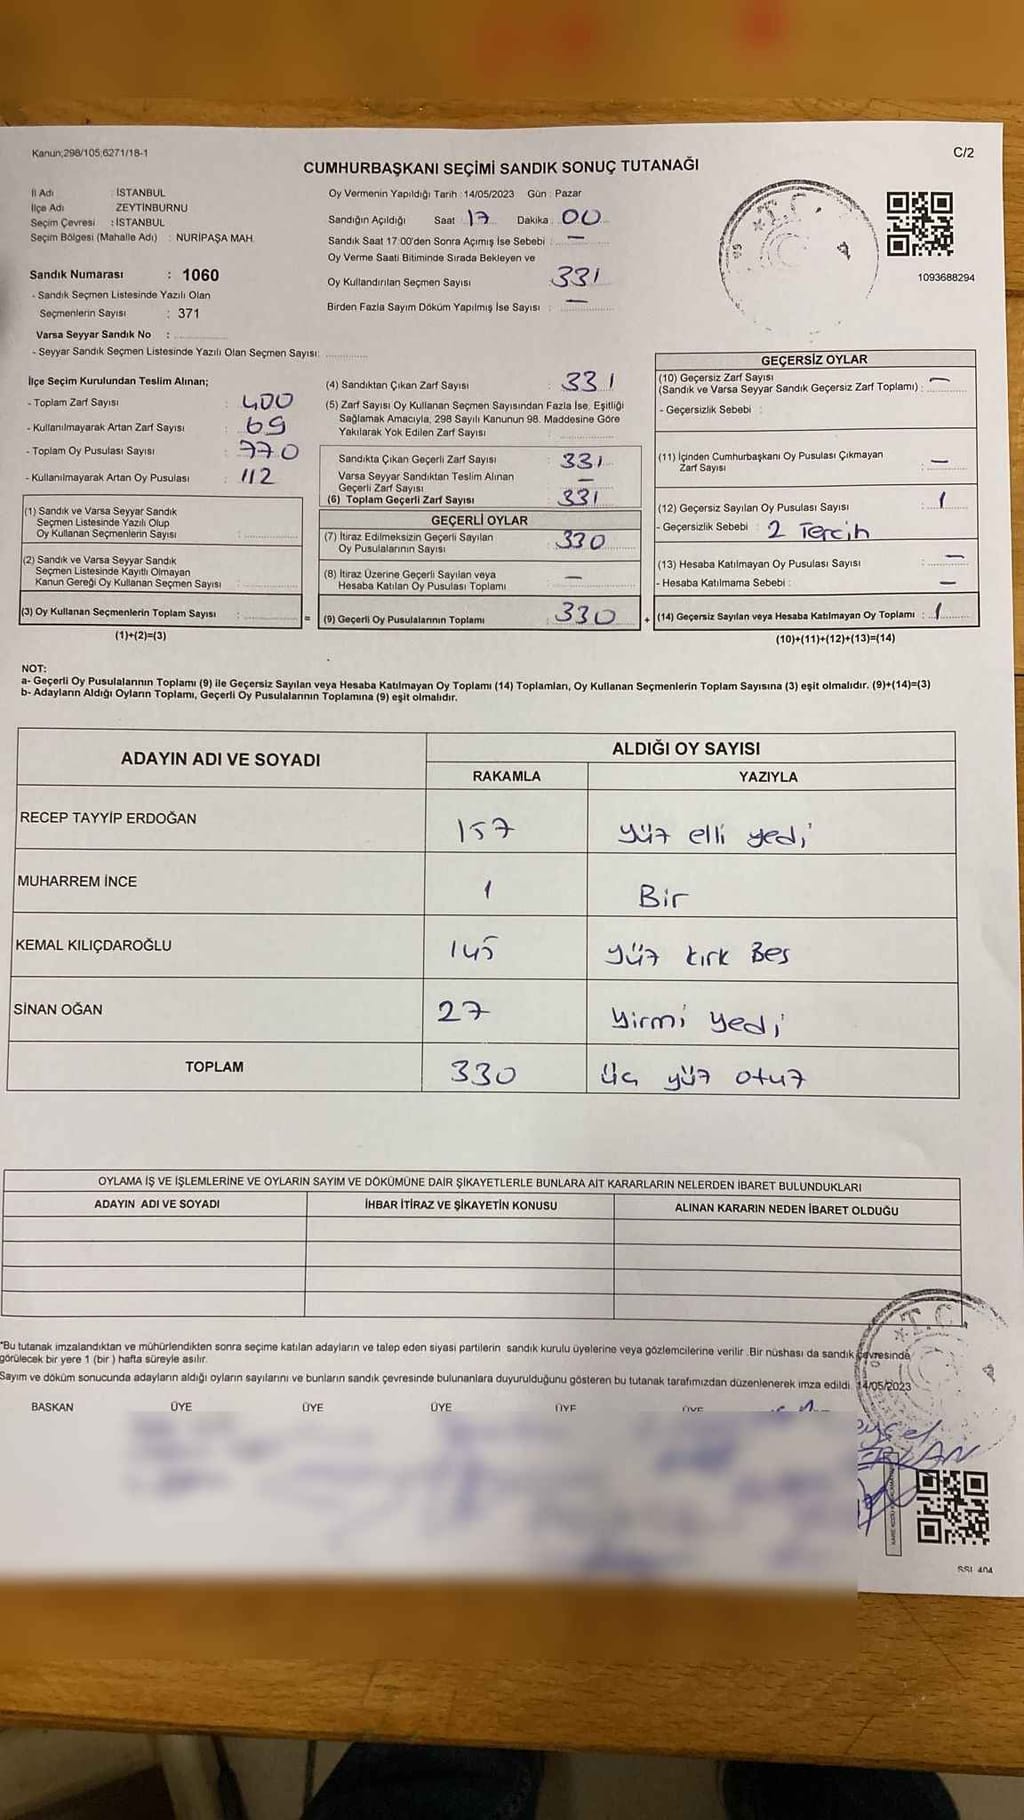 Kanun;298/105;6271/18-1
C/2
CUMHURBAŞKANI SEÇİMİ SANDIK SONUÇ TUTANAĞI
İl Adı : İSTANBUL
İlçe Adı ZEYTİNBURNU
Seçim Çevresi : İSTANBUL
Seçim Bölgesi (Mahalle Adı) : NURİPAŞA MAH.
Sandık Numarası : 1060
- Sandık Seçmen Listesinde Yazılı Olan
Seçmenlerin Sayısı : 371
Varsa Seyyar Sandık No :
- Seyyar Sandık Seçmen Listesinde Yazılı Olan Seçmen Sayısı:
Oy Vermenin Yapıldığı Tarih : 14/05/2023 Gün : Pazar
Sandığın Açıldığı Saat 17 Dakika 00
Sandık Saat 17:00'den Sonra Açımış İse Sebebi : —
Oy Verme Saati Bitiminde Sırada Bekleyen ve
Oy Kullandırılan Seçmen Sayısı : 331
Birden Fazla Sayım Döküm Yapılmış İse Sayısı : —
T.C.
1093688294
İlçe Seçim Kurulundan Teslim Alınan;
- Toplam Zarf Sayısı : 400
- Kullanılmayarak Artan Zarf Sayısı : 69
- Toplam Oy Pusulası Sayısı : 770
- Kullanılmayarak Artan Oy Pusulası : 112
(1) Sandık ve Varsa Seyyar Sandık
Seçmen Listesinde Yazılı Olup
Oy Kullanan Seçmenlerin Sayısı :
(2) Sandık ve Varsa Seyyar Sandık
Seçmen Listesinde Kayıtlı Olmayan
Kanun Gereği Oy Kullanan Seçmen Sayısı :
(3) Oy Kullanan Seçmenlerin Toplam Sayısı :
(1)+(2)=(3)
(4) Sandıktan Çıkan Zarf Sayısı : 331
(5) Zarf Sayısı Oy Kullanan Seçmen Sayısından Fazla İse, Eşitliği
Sağlamak Amacıyla, 298 Sayılı Kanunun 98. Maddesine Göre
Yakılarak Yok Edilen Zarf Sayısı :
Sandıkta Çıkan Geçerli Zarf Sayısı : 331
Varsa Seyyar Sandıktan Teslim Alınan
Geçerli Zarf Sayısı : —
(6) Toplam Geçerli Zarf Sayısı : 331
GEÇERLİ OYLAR
(7) İtiraz Edilmeksizin Geçerli Sayılan
Oy Pusulalarının Sayısı : 330
(8) İtiraz Üzerine Geçerli Sayılan veya
Hesaba Katılan Oy Pusulası Toplamı : —
= (9) Geçerli Oy Pusulalarının Toplamı : 330 +
GEÇERSİZ OYLAR
(10) Geçersiz Zarf Sayısı
(Sandık ve Varsa Seyyar Sandık Geçersiz Zarf Toplamı) : —
- Geçersizlik Sebebi :
(11) İçinden Cumhurbaşkanı Oy Pusulası Çıkmayan
Zarf Sayısı : —
(12) Geçersiz Sayılan Oy Pusulası Sayısı : 1
- Geçersizlik Sebebi : 2 Tercih
(13) Hesaba Katılmayan Oy Pusulası Sayısı : —
- Hesaba Katılmama Sebebi : —
(14) Geçersiz Sayılan veya Hesaba Katılmayan Oy Toplamı : 1
(10)+(11)+(12)+(13)=(14)
NOT:
a- Geçerli Oy Pusulalarının Toplamı (9) ile Geçersiz Sayılan veya Hesaba Katılmayan Oy Toplamı (14) Toplamları, Oy Kullanan Seçmenlerin Toplam Sayısına (3) eşit olmalıdır. (9)+(14)=(3)
b- Adayların Aldığı Oyların Toplamı, Geçerli Oy Pusulalarının Toplamına (9) eşit olmalıdır.
ADAYIN ADI VE SOYADI ALDIĞI OY SAYISI
RAKAMLA YAZIYLA
RECEP TAYYİP ERDOĞAN 157 yüz elli yedi
MUHARREM İNCE 1 Bir
KEMAL KILIÇDAROĞLU 145 yüz kırk Beş
SİNAN OĞAN 27 Yirmi yedi
TOPLAM 330 üç yüz otuz
OYLAMA İŞ VE İŞLEMLERİNE VE OYLARIN SAYIM VE DÖKÜMÜNE DAİR ŞİKAYETLERLE BUNLARA AİT KARARLARIN NELERDEN İBARET BULUNDUKLARI
ADAYIN ADI VE SOYADI İHBAR İTİRAZ VE ŞİKAYETİN KONUSU ALINAN KARARIN NEDEN İBARET OLDUĞU
T.C.
*Bu tutanak imzalandıktan ve mühürlendikten sonra seçime katılan adayların ve talep eden siyasi partilerin sandık kurulu üyelerine veya gözlemcilerine verilir .Bir nüshası da sandık çevresinde
görülecek bir yere 1 (bir ) hafta süreyle asılır.
Sayım ve döküm sonucunda adayların aldığı oyların sayılarını ve bunların sandık çevresinde bulunanlara duyurulduğunu gösteren bu tutanak tarafımızdan düzenlenerek imza edildi. 14/05/2023
BAŞKAN ÜYE ÜYE ÜYE ÜYE ÜYE